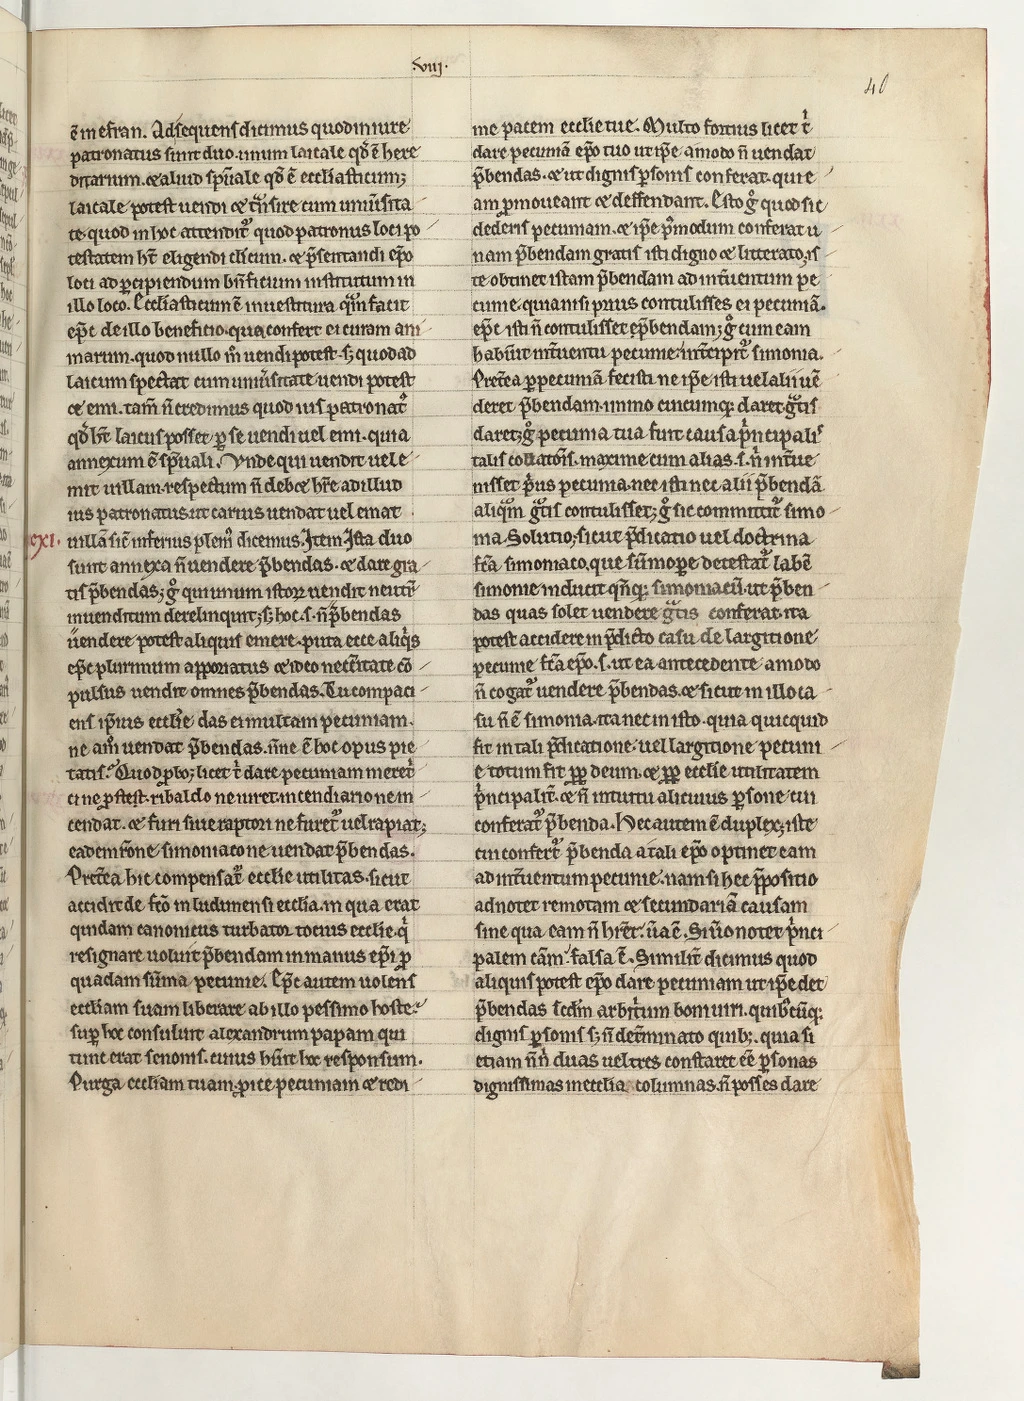 xviij.
40
ē in efran. Ad sequens dicimus quod in iure
patronatus sunt duo. unum laicale qđ ē here
ditarium. ⁊ aliud sp̄uale qđ ē eccl̄iasticum;
laicale potest uendi ⁊ t̄nsire cum uniu̅sita
te. quod in hoc attendit᷑ quod patronus loci po
testatem hr̄t eligendi cl̄icum. ⁊ p̄sentandi ep̄o
loci ad ꝑcipiendum bn̄ficium institutum in
illo loco. Eccl̄iasticum ē inuestitura qm̄ facit
ep̄c de illo beneficio. qua confert ei curam ani
marum. quod nullo m̊ uendi potest. s; quod ad
laicum spectat cum uniu̅sitate uendi potest
⁊ emi. tam̄ n̄ credimus quod ius patronat᷑
qđ hr̄t laicus posset ꝑ se uendi uel emi. quia
annexum ē sp̄uali. Vnde qui uendit uel e
mit uillam. respectum n̄ debet hr̄e ad illud
ius patronatus ut carius uendat uel emat
xxi.
uillā sic̄ inferius plen̄ dicemus. Item Ista duo
sunt annexa n̄ uendere p̄bendas. ⁊ dare gra
tis p̄bendas; g̊ qui unum istor̄ uendit neut̄
inuenditum derelinquit; s; hoc. s. n̄ p̄bendas
uendere potest aliquis emere. puta ecce aliq̓s
ep̄c plurimum apporiatus ⁊ ideo nec̄itate cō
pulsus uendit omnes p̄bendas. Tu compaci
ens ipsius eccl̄ie das ei multam pecuniam.
ne am̊ uendat p̄bendas. n̄ne ē hoc opus pie
tatis? Quod ꝓbo; licet t̓ dare pecuniam meret̓
ci ne ꝓstest. ribaldo ne iuret. incendiario ne in
cendat. ⁊ furi siue raptori ne furet᷑ uel rapiat;
eadem rōne simoniaco ne uendat p̄bendas.
Pret̄ea hic compensat᷑ eccl̄ie utilitas. sicut
accidit de fc̄o in ludunensi eccl̄ia. in qua erat
quidam canonicus turbator totius eccl̄ie. q̓
resignare uoluit p̄bendam in manus ep̄i ꝓ
quadam sūma pecunie. Ep̄c autem uolens
eccl̄iam suam liberare ab illo pessimo hoste.
suꝑ hoc consuluit alexandrum papam qui
tunc erat senonis. cuius hūit hoc responsum.
Purga eccl̄iam tuam. ꝑice pecuniam ⁊ redi
me pacem eccl̄ie tue. Multo fortius licet t̓
dare pecuniā ep̄o tuo ut ip̄e amodo n̄ uendat
p̄bendas. ⁊ ut dignis ꝑsonis conferat. qui e
am ꝓmoueant ⁊ deffendant. Esto g̊ quod sic
dederis pecuniam. ⁊ ip̄e p̊modum conferat u
nam p̄bendam gratis isti digno ⁊ litterato. is
te obtinet istam p̄bendam ad int̄uentum pe
cunie. quia nisi prius contulisses ei pecuniā.
ep̄c isti n̄ contulisset p̄bendam; g̊ cum eam
habūit int̄uentu pecunie. int̄cipit᷑ simonia.
Pret̄ea ꝑ pecuniā fecisti ne ip̄e isti uel alii uē
deret p̄bendam. immo cuicumq; daret gᷓtis
daret; g̊ pecunia tua fuit causa p̓ncipalis
talis collatōis. maxime cum alias. s. n̓ int̄ue
nisset p̓us pecunia. nec isti nec alii p̄bendā
aliqm̄ gᷓtis contulisset; g̊ sic committit᷑ simo
nia. Solutio; sicut p̄dicatio uel doctrina
fc̄a simoniaco, que sūmope detestat᷑ labē
simonie inducit qn̄q; simoniacū. ut p̄ben
das quas solet uendere gᷓtis conferat. ita
potest accidere in p̄dicto casu de largitione
pecunie fc̄a ep̄o. s. ut ea antecedente amodo
n̄ cogat᷑ uendere p̄bendas. ⁊ sicut in illo ca
su n̄ ē simonia. ita nec in isto. quia quicquid
fit in tali p̄dicatione. uel largitione pecuni
e totum fit ꝓp̄ deum. ⁊ ꝓp̄ eccl̄ie utilitatem
p̓ncipalit̄. ⁊ n̄ intuitu alicuius ꝑsone cui
conferat᷑ p̄benda. Hec autem ē duplex; iste
cui confert᷑ p̄benda a tali ep̄o optinet eam
ad int̄uentum pecunie. nam si hec p̄positio
ad notet remotam ⁊ secundariā causam
sine qua eam n̄ hr̄et. ūa ē. Si ūo notet p̓nci
palem cām. falsa ē. Similit̄ dicimus quod
aliquis potest ep̄o dare pecuniam ut ip̄e det
p̄bendas scd̄m arbitrium boni uiri. quibuscūq;
dignis ꝑsonis s; n̄ det̄minato quib;. quia si
etiam n̄ n̓ duas uel tres constaret eē ꝑsonas
dignissimas in eccl̄ia columnas. n̄ posses dare